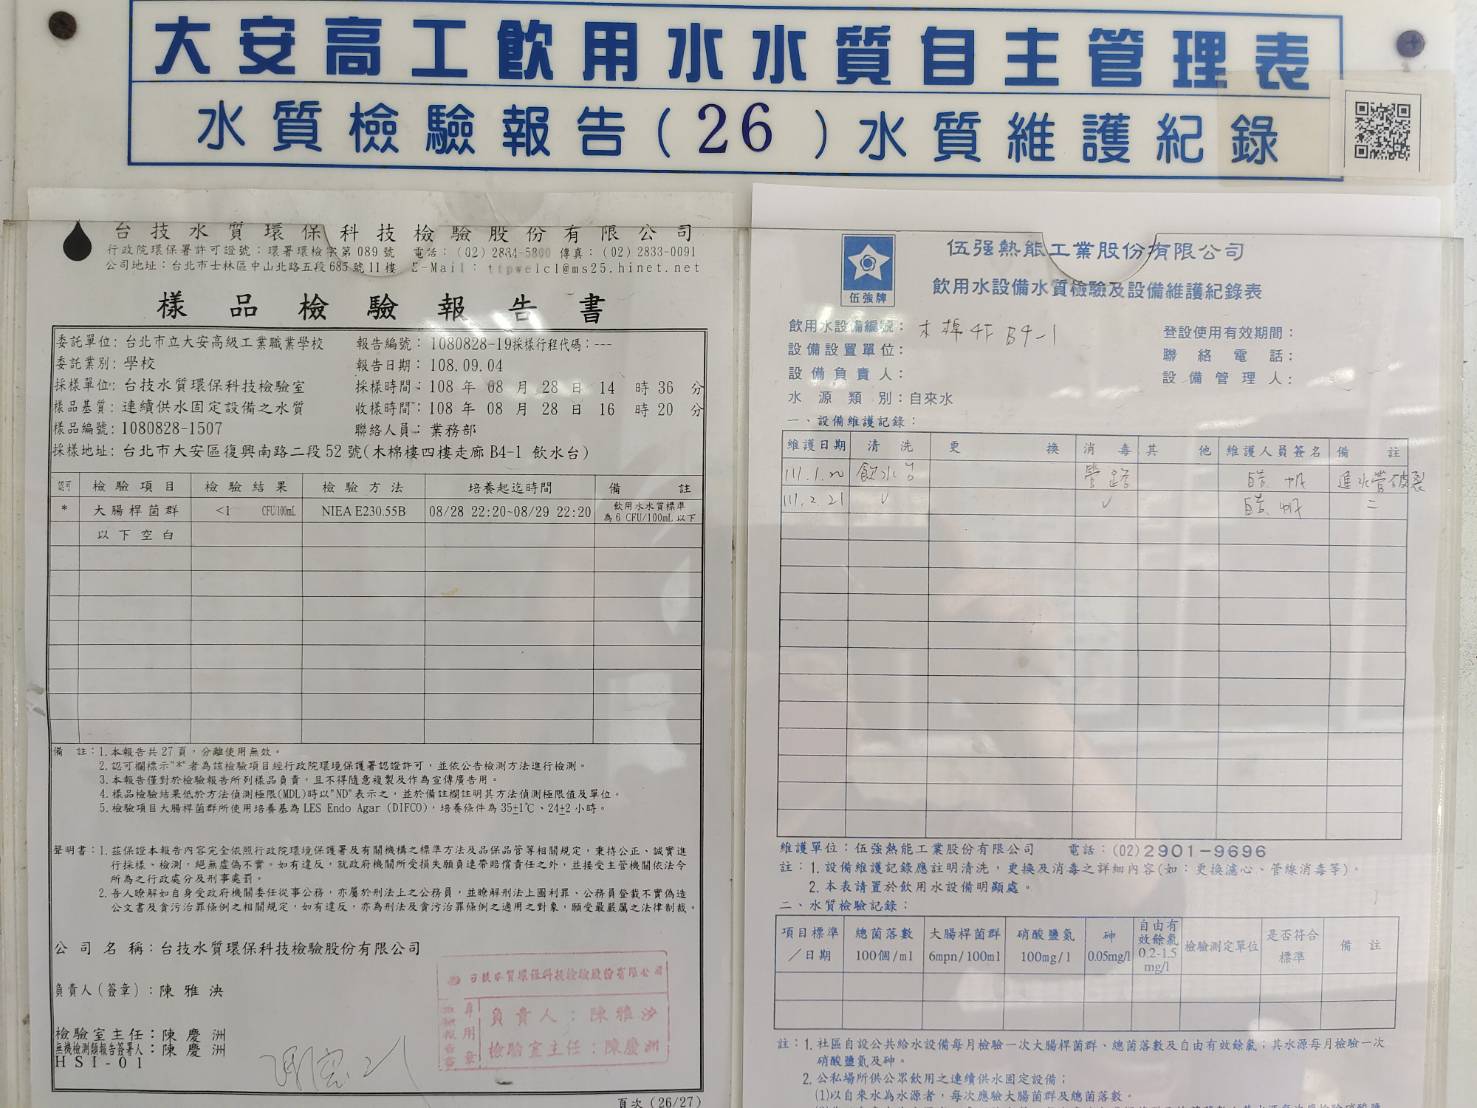 大安高工飲用水水質自主管理表
水質檢驗報告(26)水質維護紀錄
台技水質環保科技檢驗股份有限公司
行政院環保署許可證號：環署環檢字第089號 電話：(02)2834-5800 傳真：(02)2833-0091
公司地址：台北市士林區中山北路五段685號11樓 E-Mail：ttpwelcl@ms25.hinet.net
樣品檢驗報告書
委託單位：台北市立大安高級工業職業學校 報告編號：1080828-19採樣行程代碼：---
委託業別：學校 報告日期：108.09.04
採樣單位：台技水質環保科技檢驗室 採樣時間：108 年 08 月 28 日 14 時 36 分
樣品基質：連續供水固定設備之水質 收樣時間：108 年 08 月 28 日 16 時 20 分
樣品編號：1080828-1507 聯絡人員：業務部
採樣地址：台北市大安區復興南路二段52號(木棉樓四樓走廊B4-1 飲水台)
認可 檢驗項目 檢驗結果 檢驗方法 培養起迄時間 備註
* 大腸桿菌群 <1 CFU/100mL NIEA E230.55B 08/28 22:20~08/29 22:20 飲用水水質標準為6 CFU/100mL以下
以下空白
備 註：1.本報告共27頁，分離使用無效。
2.認可欄標示"*"者為該檢驗項目經行政院環境保護署認證許可，並依公告檢測方法進行檢測。
3.本報告僅對於檢驗報告所列樣品負責，且不得隨意複製及作為宣傳廣告用。
4.樣品檢驗結果低於方法偵測極限(MDL)時以"ND"表示之，並於備註欄註明其方法偵測極限值及單位。
5.檢驗項目大腸桿菌群所使用培養基為LES Endo Agar (DIFCO)，培養條件為35±1℃、24±2小時。
聲明書：1.茲保證本報告內容完全依照行政院環境保護署及有關機構之標準方法及品保品管等相關規定，秉持公正、誠實進
行採樣、檢測，絕無虛偽不實。如有違反，就政府機關所受損失願負連帶賠償責任之外，並接受主管機關依法令
所為之行政處分及刑事處罰。
2.吾人瞭解如自身受政府機關委任從事公務，亦屬於刑法上之公務員，並瞭解刑法上圖利罪、公務員登載不實偽造
公文書及貪污治罪條例之相關規定，如有違反，亦為刑法及貪污治罪條例之適用之對象，願受最嚴厲之法律制裁。
公司名稱：台技水質環保科技檢驗股份有限公司
負責人(簽章)：陳雅泱
檢驗室主任：陳慶洲
無機檢測類報告簽署人：陳慶洲
HSI-01
台技水質環保科技檢驗股份有限公司
負責人：陳雅泱
檢驗室主任：陳慶洲
頁次 (26/27)
伍強牌
伍強熱能工業股份有限公司
飲用水設備水質檢驗及設備維護紀錄表
飲用水設備編號：木棉4F B4-1 登設使用有效期間：
設備設置單位： 聯絡電話：
設備負責人： 設備管理人：
水源類別：自來水
一、設備維護記錄：
維護日期 清洗 更換 消毒 其他 維護人員簽名 備註
111.1.20 飲水台 管路 進水管破裂
111.2.21 ✓ ✓
維護單位：伍強熱能工業股份有限公司 電話：(02)2901-9696
註：1.設備維護記錄應註明清洗，更換及消毒之詳細內容(如：更換濾心、管線消毒等)。
2.本表請置於飲用水設備明顯處。
二、水質檢驗記錄：
項目標準／日期 總菌落數 100個/ml 大腸桿菌群 6mpn/100ml 硝酸鹽氮 100mg/l 砷 0.05mg/l 自由有效餘氯 0.2-1.5 mg/l 檢驗測定單位 是否符合標準 備註
註：1.社區自設公共給水設備每月檢驗一次大腸桿菌群、總菌落數及自由有效餘氯；其水源每月檢驗一次
硝酸鹽氮及砷。
2.公私場所供公眾飲用之連續供水固定設備：
(1)以自來水為水源者，每次應驗大腸菌群及總菌落數。